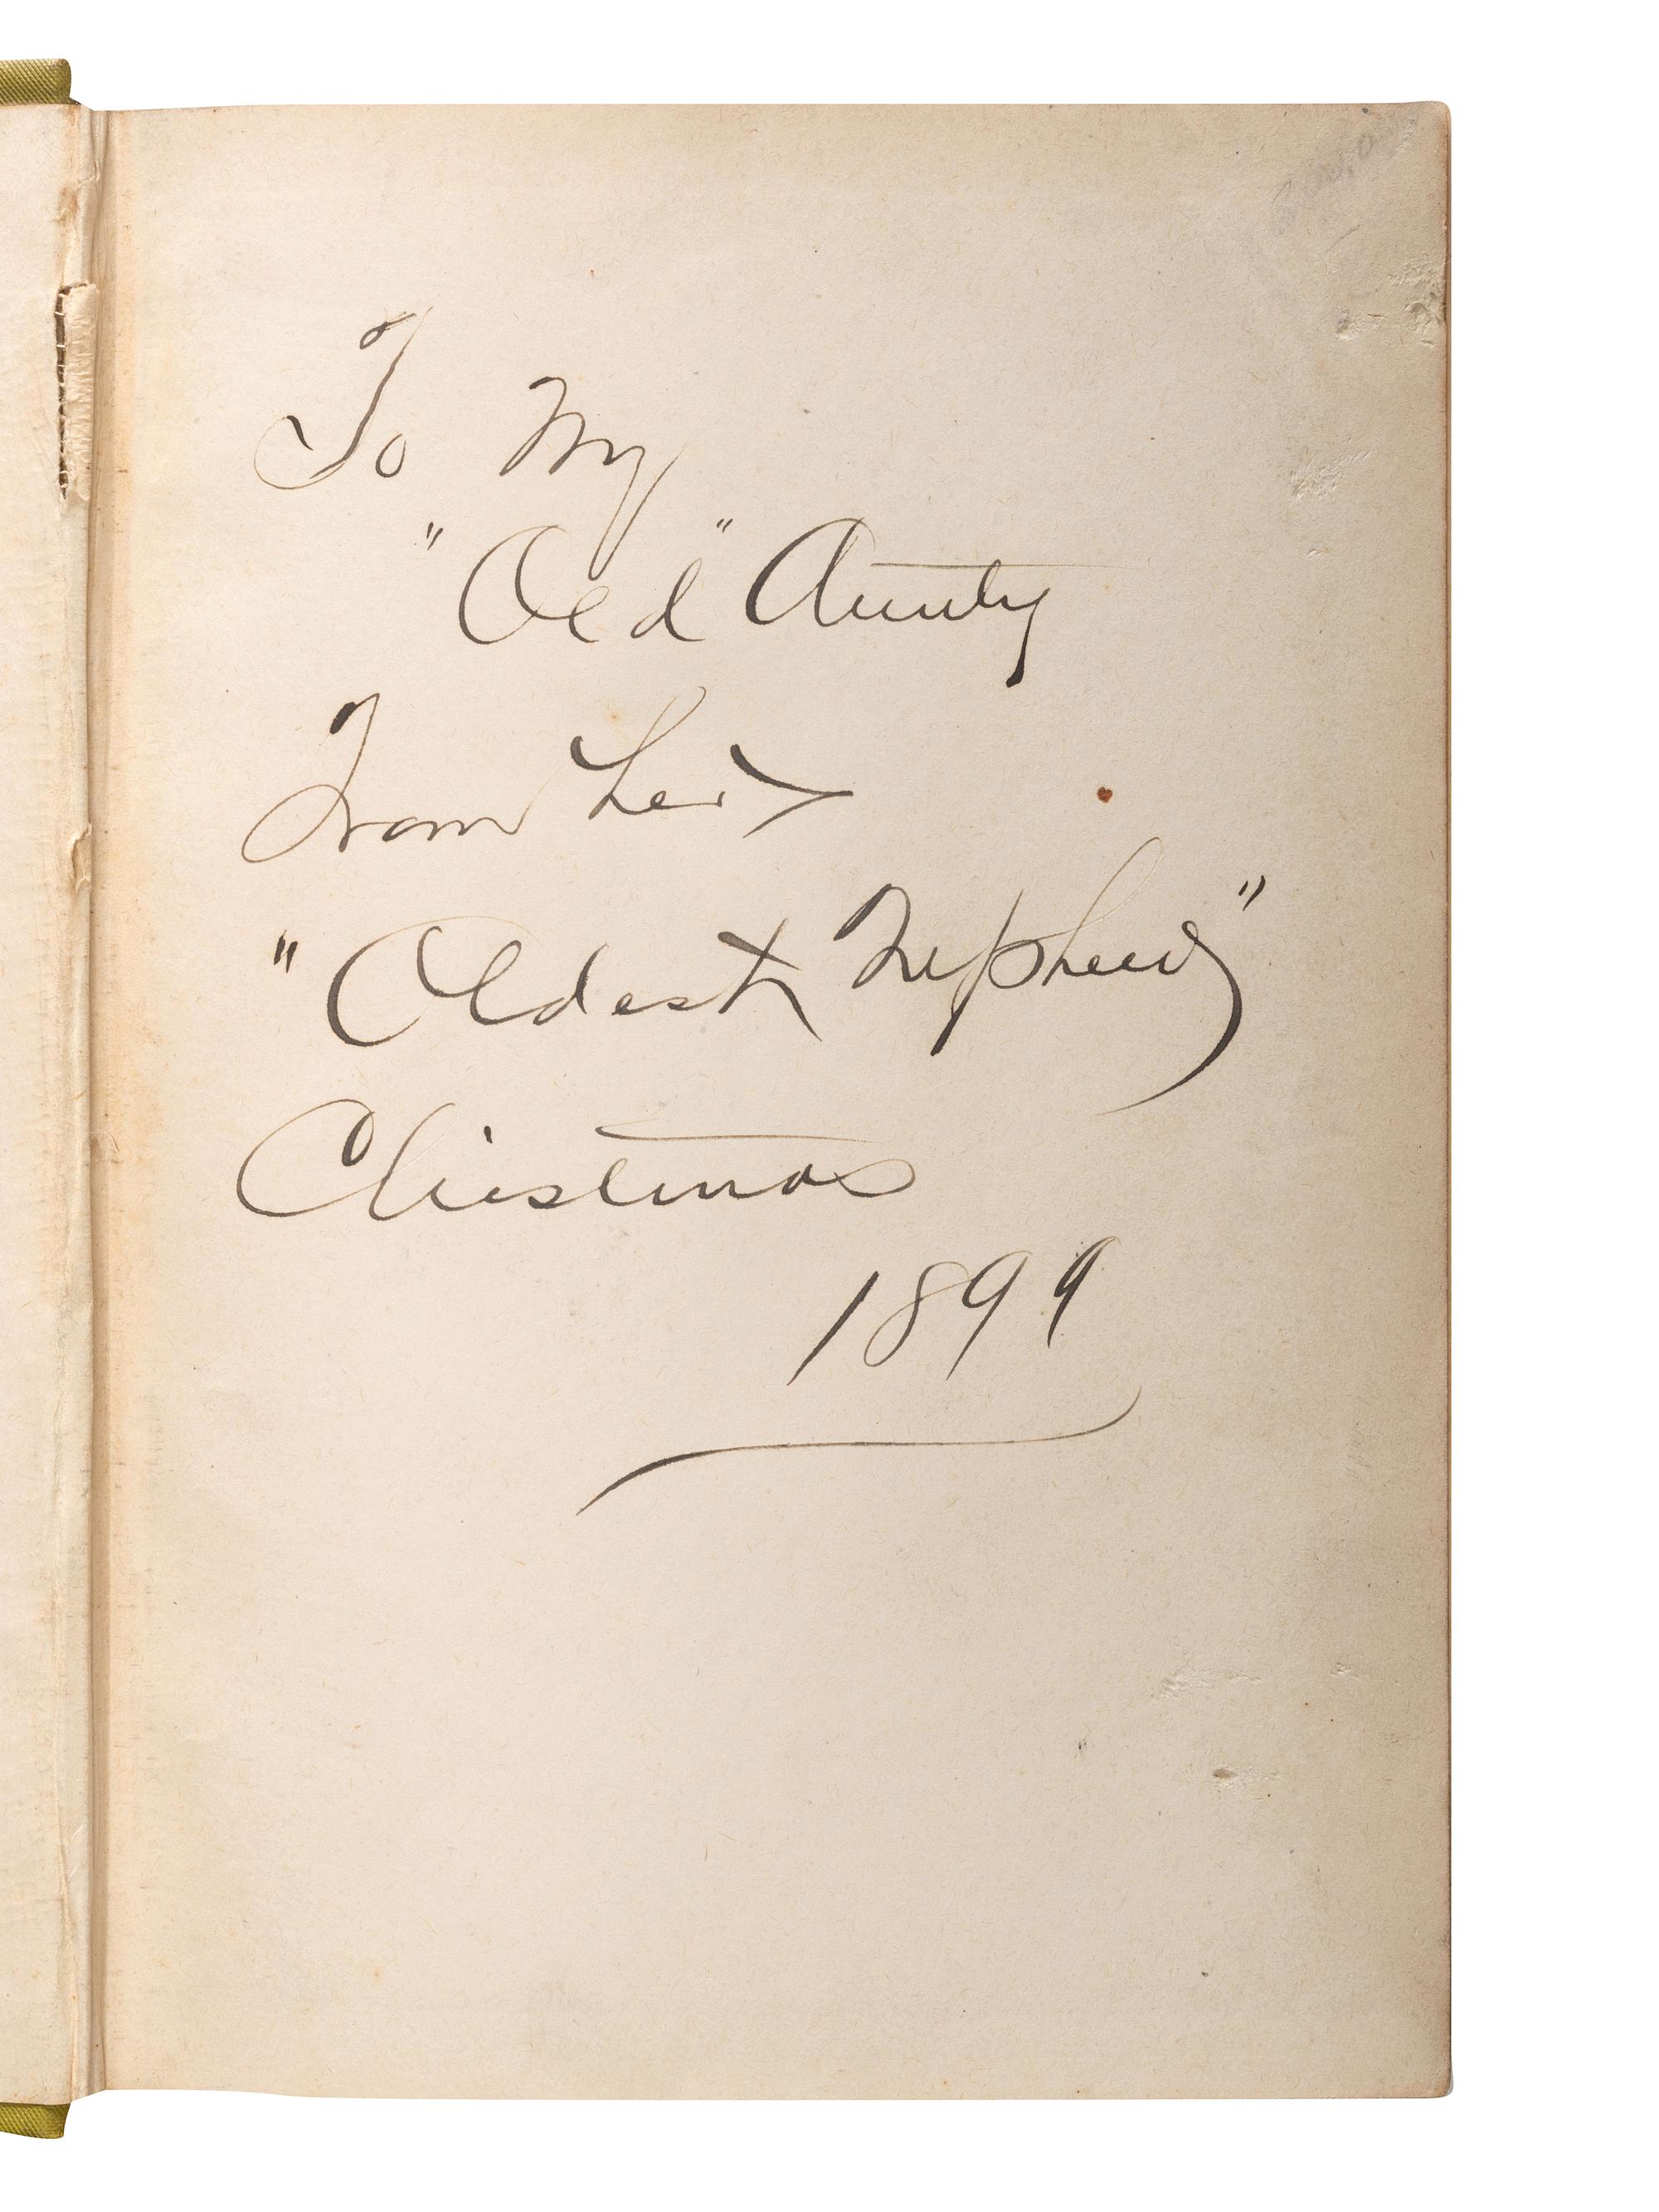 To My
"Old" Aunty
From her
"Oldest Nephew"
Christmas
1899